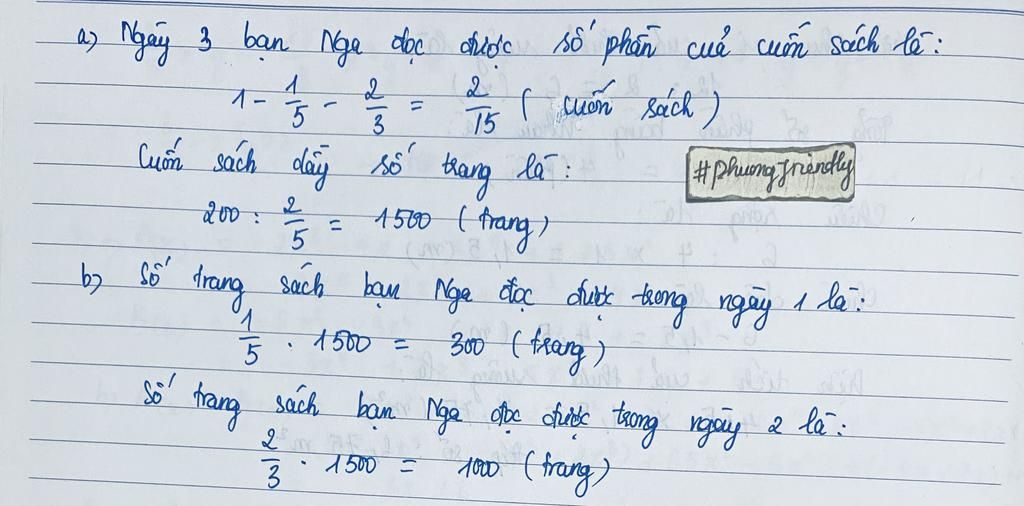 a) Ngày 3 bạn Nga đọc được số phần cuả cuốn sách là:
1 - 1/5 - 2/3 = 2/15 ( cuốn sách )
Cuốn sách dầy số trang là:
#phuongfriendly
200 : 2/5 = 1500 ( trang )
b) Số trang sách bạn Nga đọc được trong ngày 1 là:
1/5 . 1500 = 300 ( trang )
Số trang sách bạn Nga đọc được trong ngày 2 là:
2/3 . 1500 = 1000 ( trang )